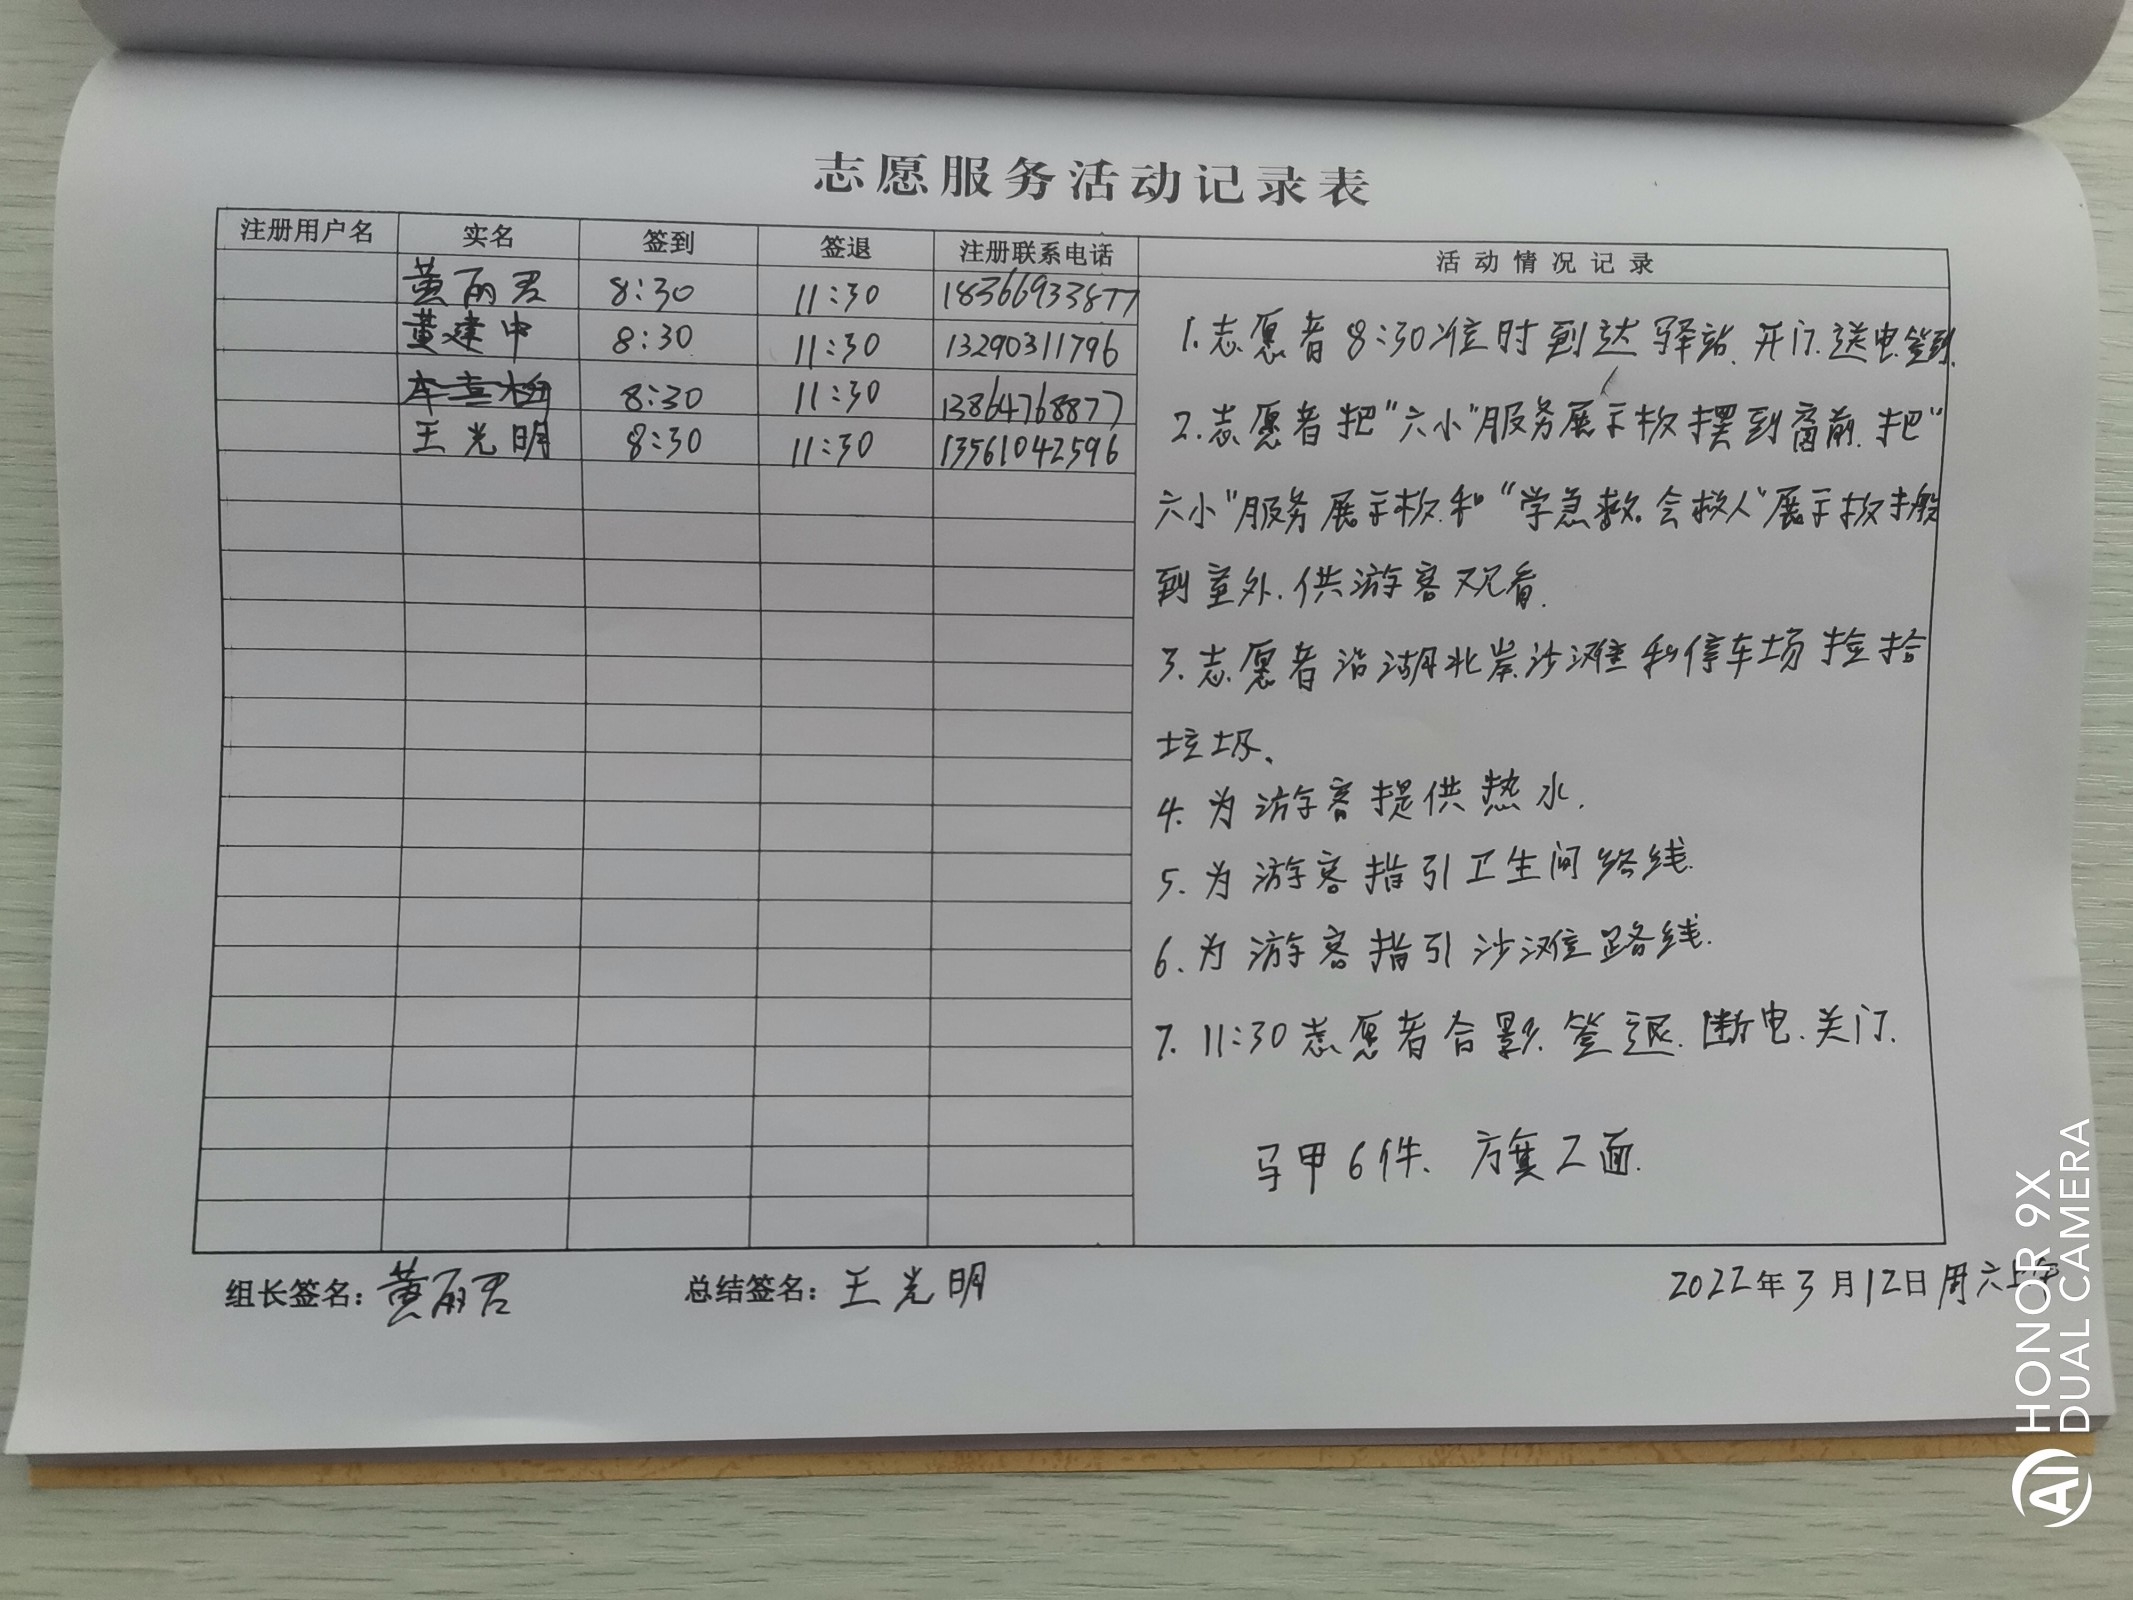 志愿服务活动记录表
注册用户名 实名 签到 签退 注册联系电话 活动情况记录
黄丽君 8:30 11:30 18366933877
黄建中 8:30 11:30 13290311796
8:30 11:30 13864768877
王光明 8:30 11:30 13561042596
1.志愿者8:30准时到达驿站.开门.送电.签到.
2.志愿者把"六小"服务展示板摆到窗前.把"
六小"服务展示板和"学急救.会救人"展示板搬
到室外.供游客观看.
3.志愿者沿湖北岸沙滩和停车场捡拾
垃圾、
4.为游客提供热水.
5.为游客指引卫生间路线.
6.为游客指引沙滩路线.
7.11:30志愿者合影.签退.断电.关门.
马甲6件、方旗2面.
组长签名：黄丽君 总结签名：王光明 2022年3月12日周六上午
HONOR 9X
AI DUAL CAMERA